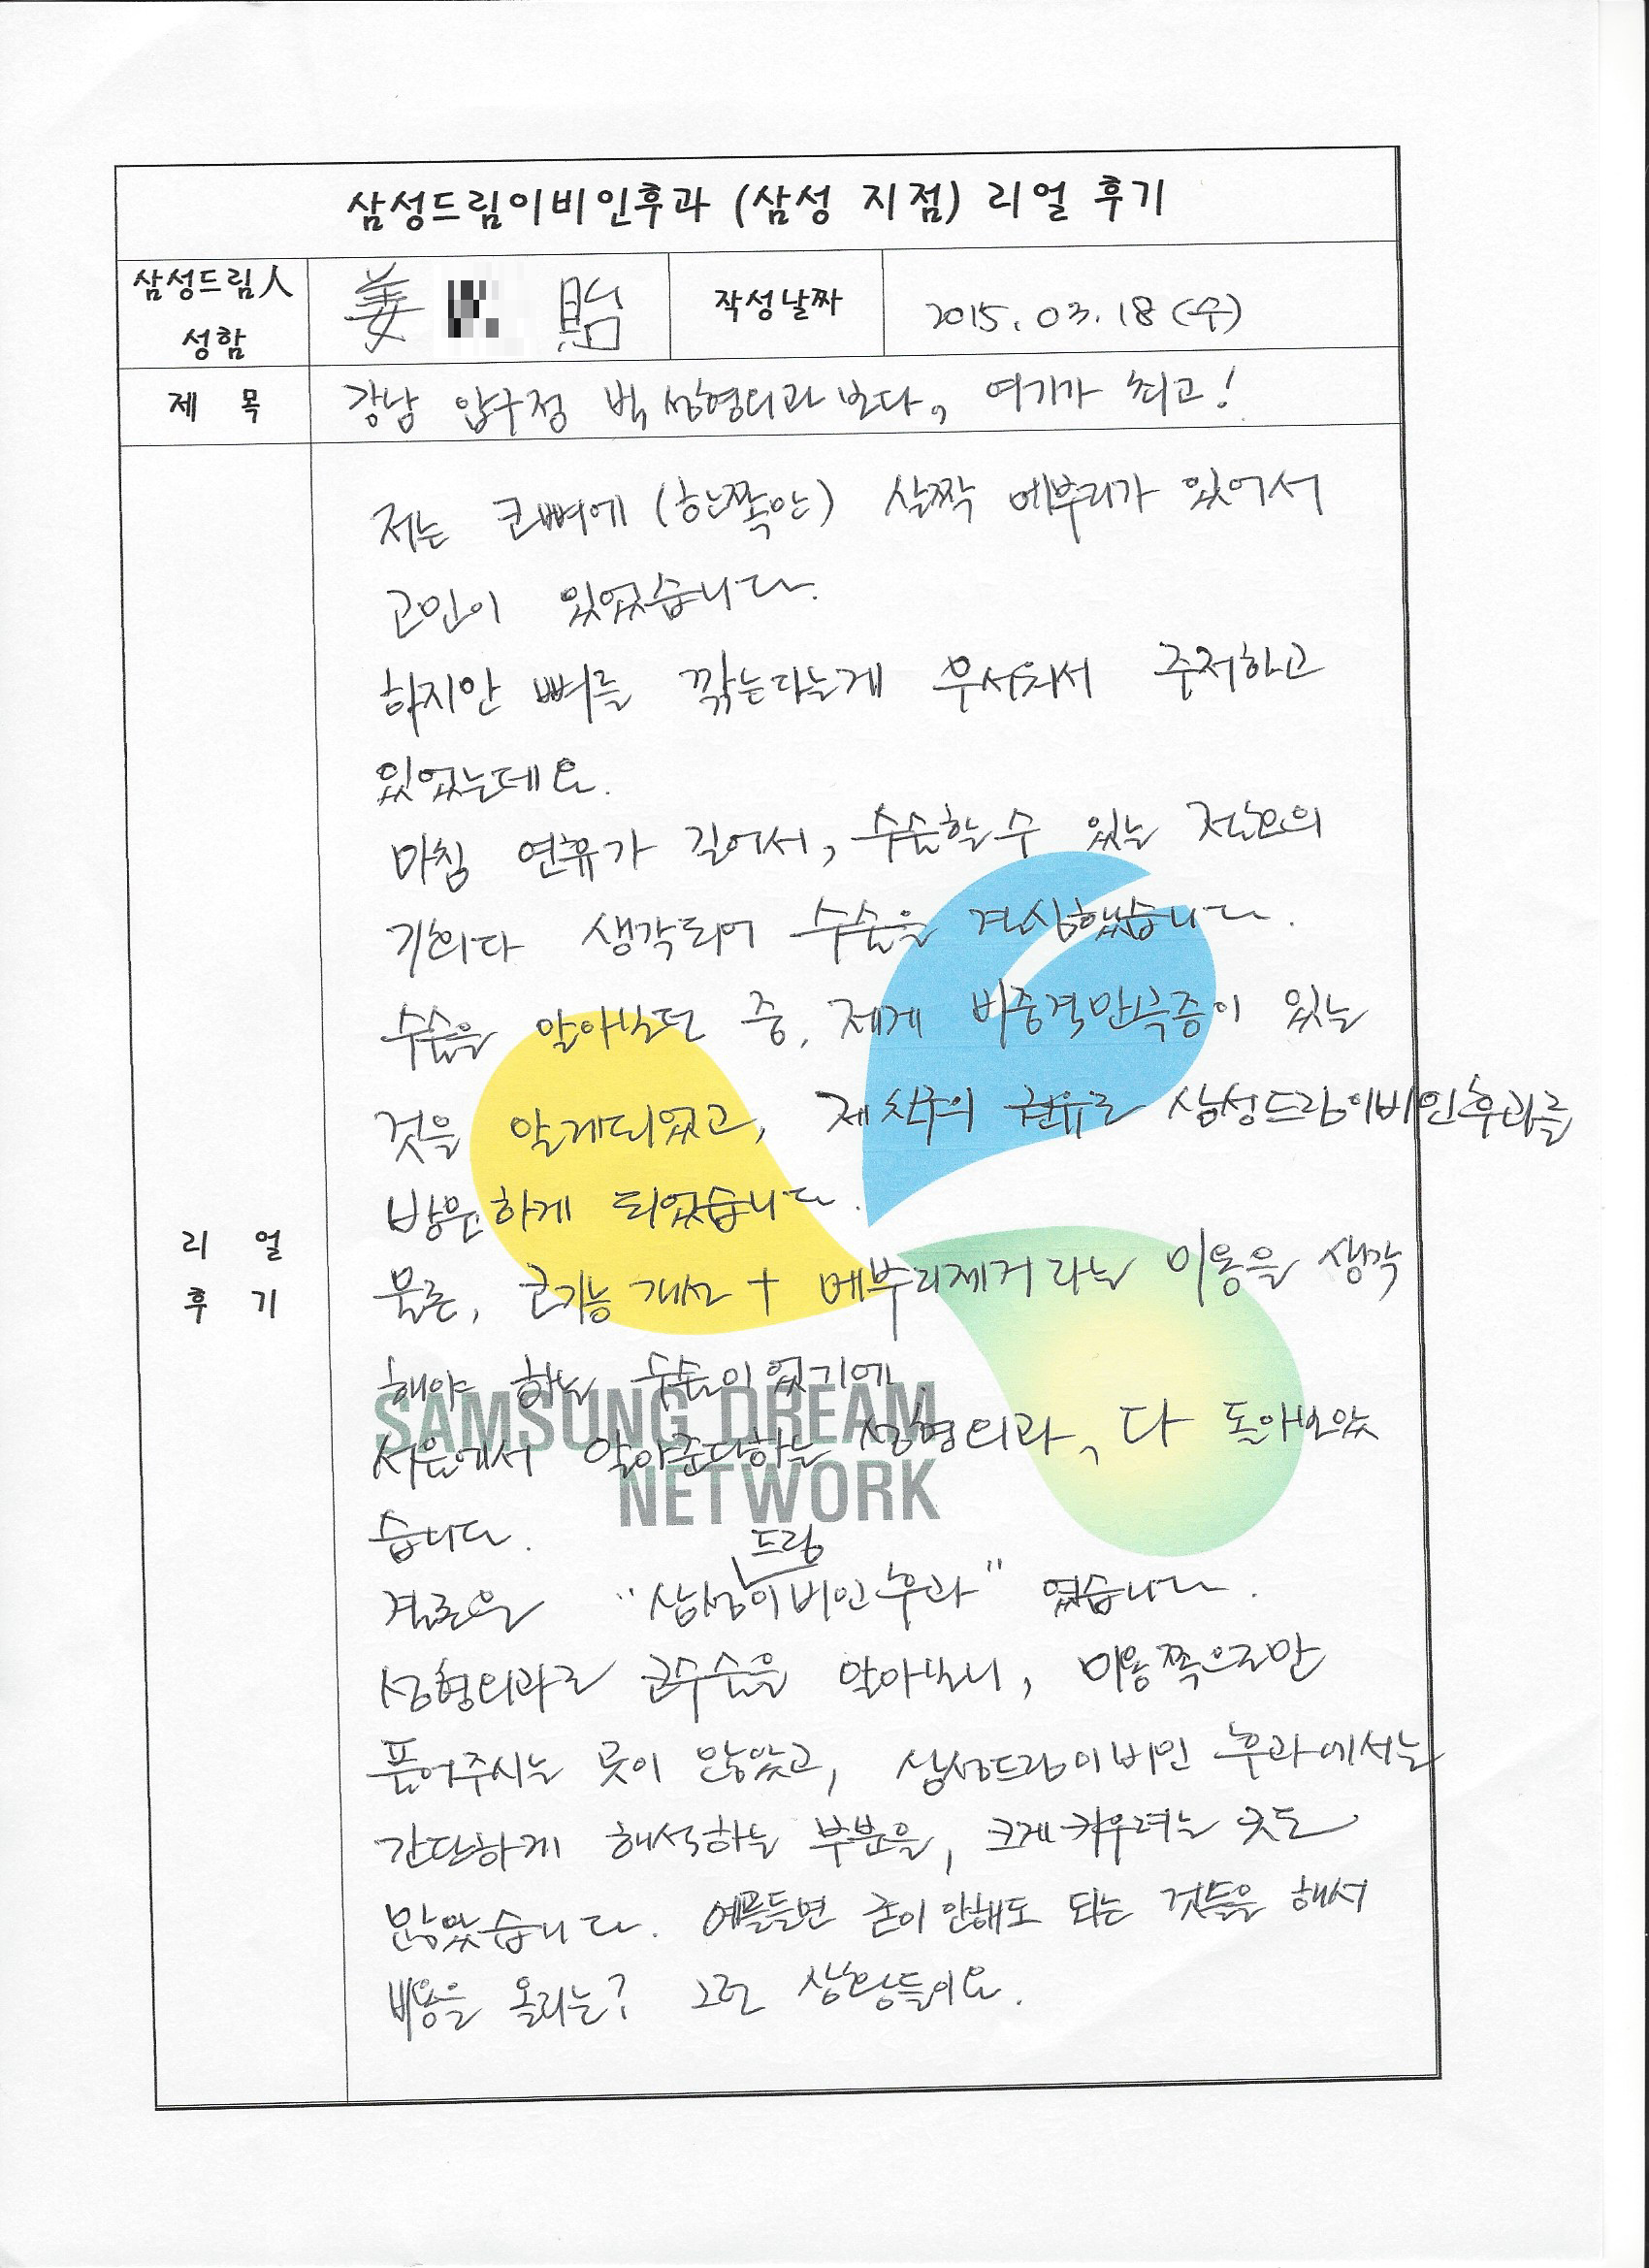 삼성드림이비인후과 (삼성 지점) 리얼 후기
삼성드림人
성함
姜 貽
작성날짜
2015. 03. 18 (수)
제 목
강남 압구정 빅 성형외과보다, 여기가 최고!
리 얼
후 기
저는 코뼈에 (한쪽만) 살짝 메부리가 있어서
고민이 있었습니다.
하지만 뼈를 깎는다는게 무서워서 주저하고
있었는데요.
마침 연휴가 길어서, 수술할 수 있는 절호의
기회다 생각되어 수술을 결심했습니다.
수술을 알아보던 중, 제게 비중격만곡증이 있는
것을 알게되었고, 제 친구의 권유로 삼성드림이비인후과를
방문하게 되었습니다.
물론, 코기능 개선 + 메부리제거 라는 미용을 생각
해야 하는 수술이었기에
서울에서 알아준다하는 성형외과, 다 돌아보았
습니다.
드림
결론은 "삼성이비인후과" 였습니다.
성형외과로 코수술을 알아보니, 미용쪽으로만
풀어주시는 곳이 많았고, 삼성드림이비인후과에서는
간단하게 해석하는 부분을, 크게 키우려는 곳도
많았습니다. 예를들면 굳이 안해도 되는 것들을 해서
비용을 올리는? 그런 상황들이요.
SAMSUNG DREAM
NETWORK